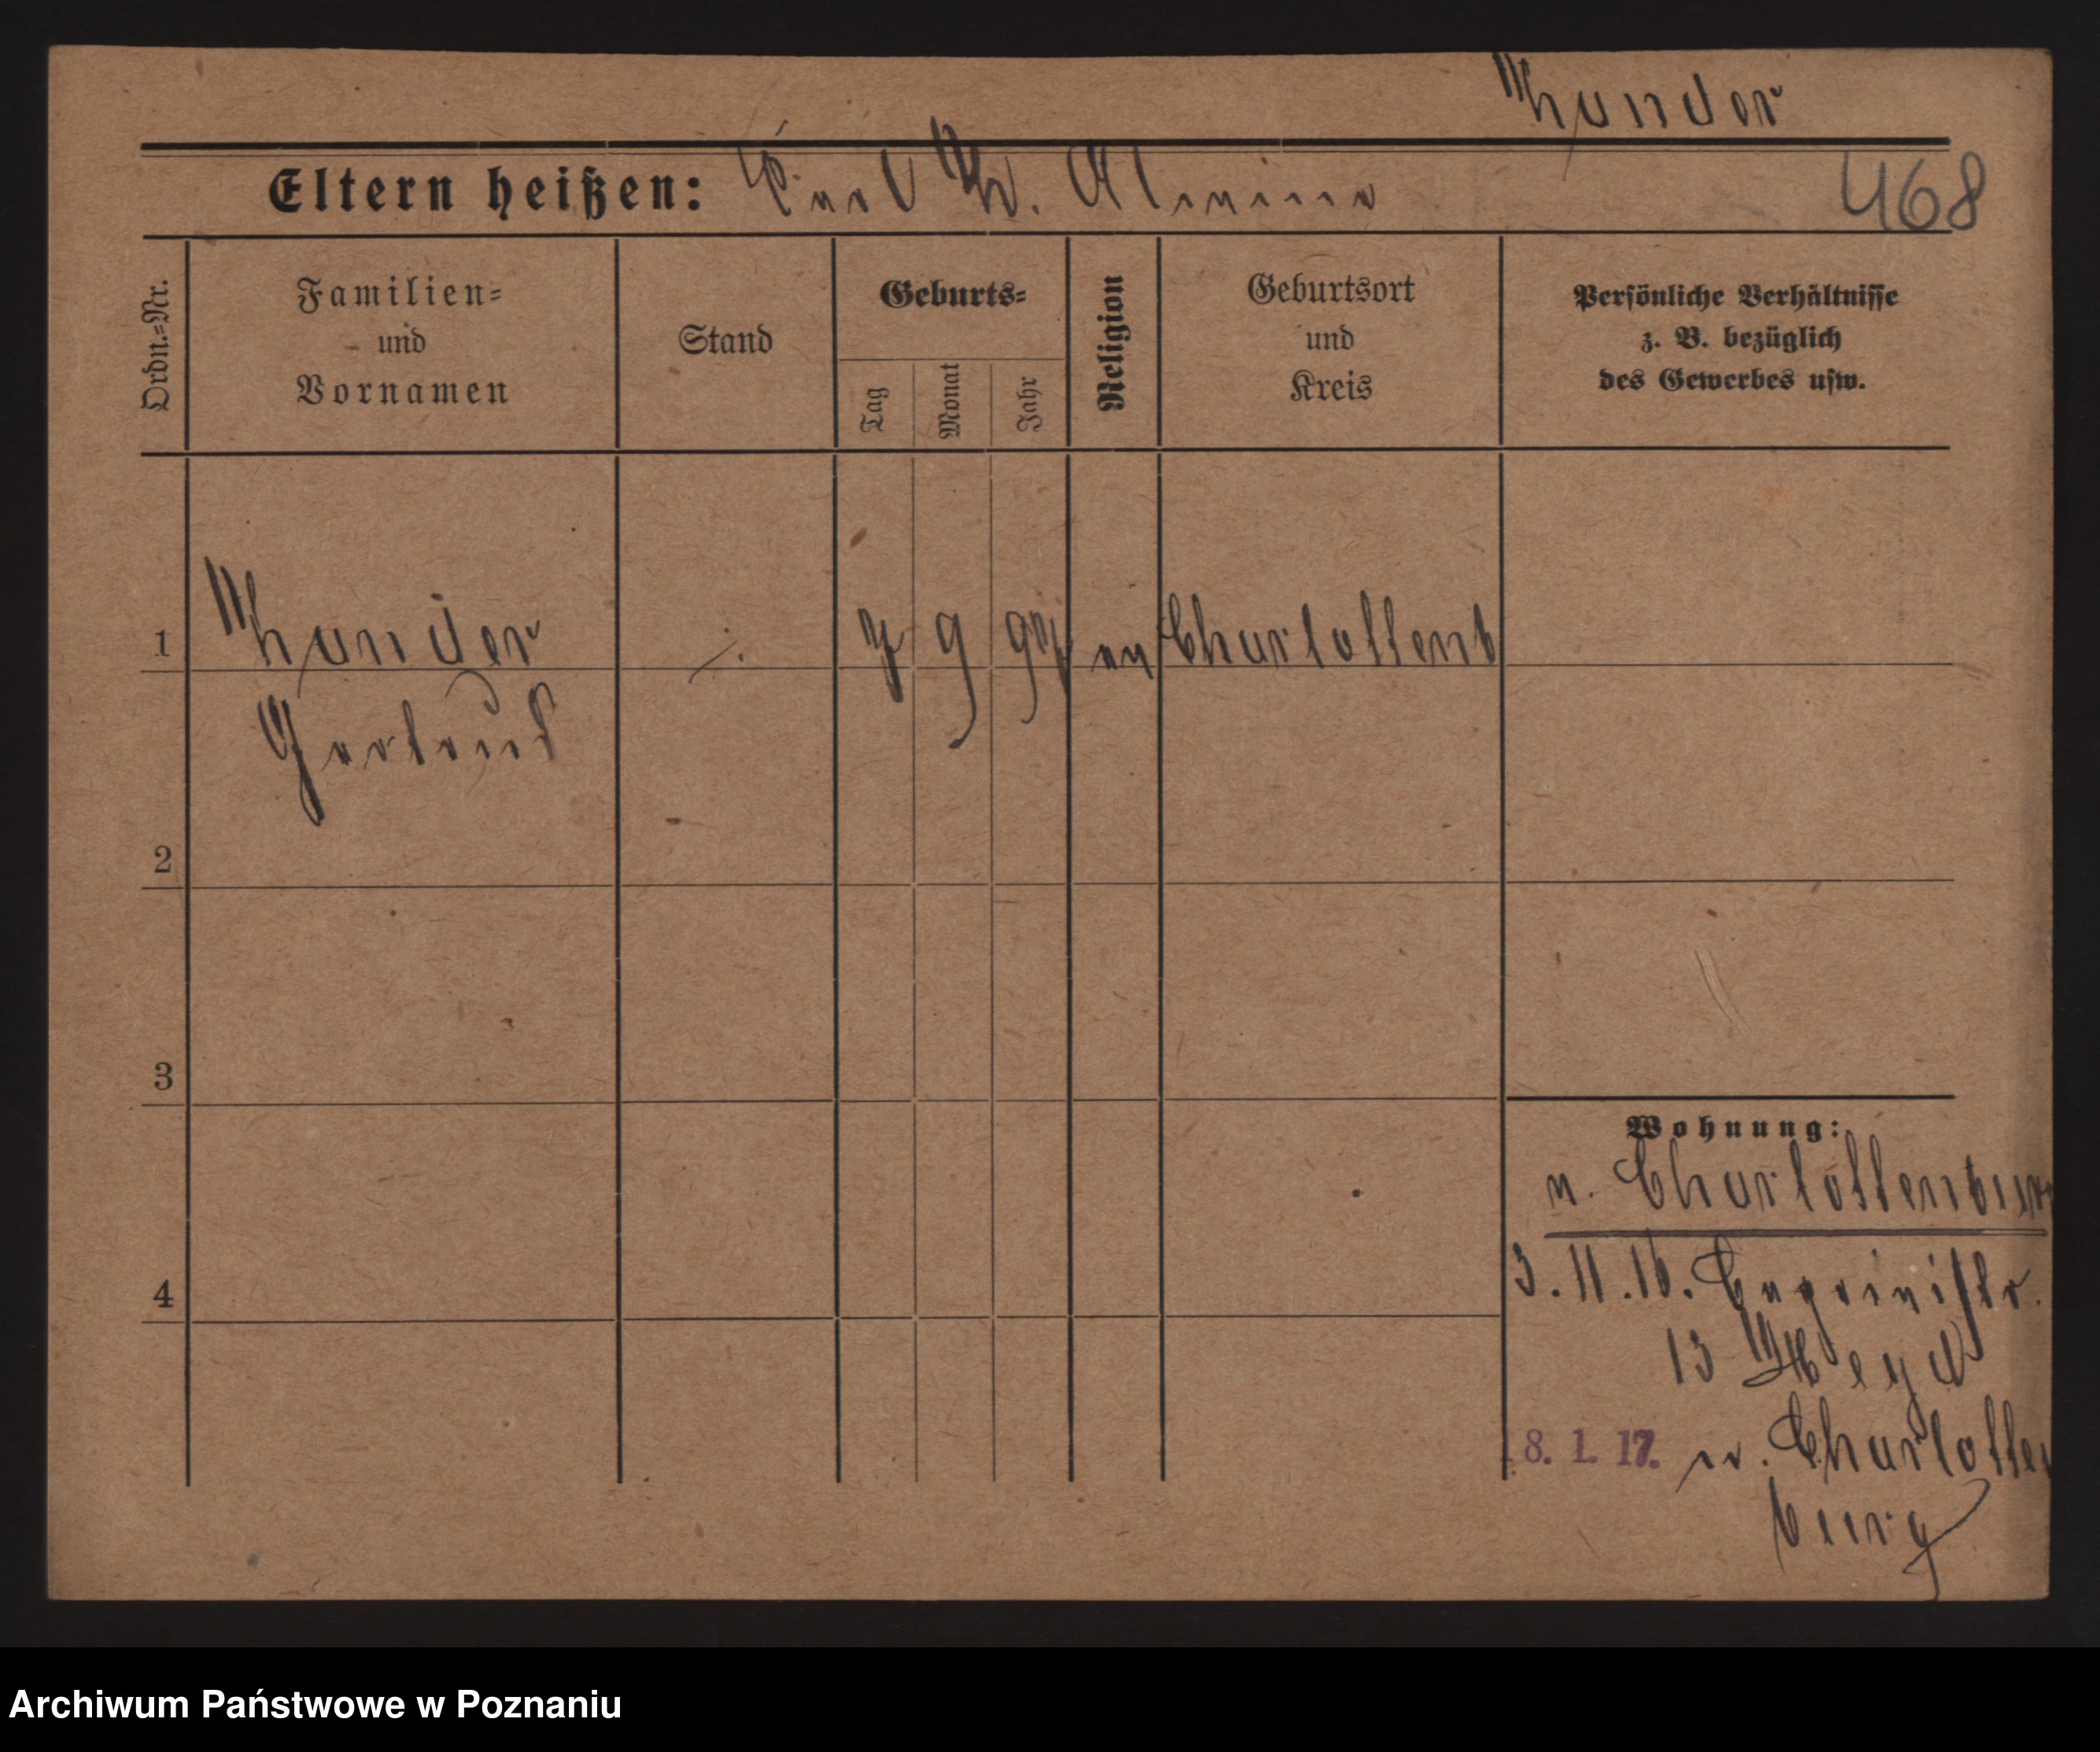 Wunder
Eltern heißen: Karl W. Almine
468
Ordn.=Nr.
Familien=
und
Vornamen
Stand
Geburts=
Tag
Monat
Jahr
Religion
Geburtsort
und
Kreis
Persönliche Verhältnisse
z. B. bezüglich
des Gewerbes usw.
1 Wunder ./. 7 9 97 ev Charlottenb
Gertrud
2
3
4
Wohnung:
v. Charlottenbur
3. 11. 16.
13
8. 1. 17. n. Charlotten
burg
Archiwum Państwowe w Poznaniu